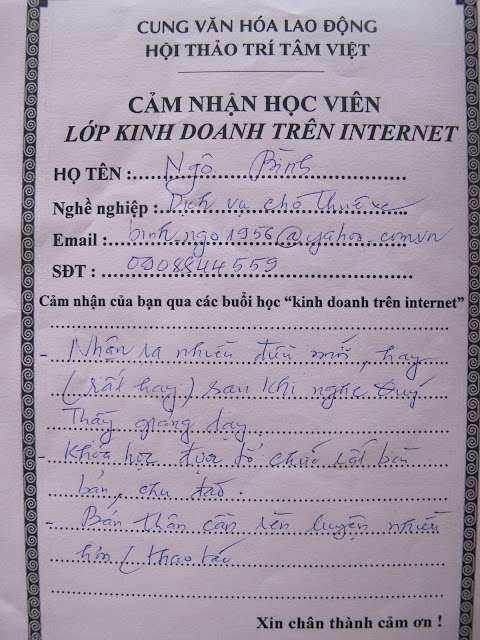 CUNG VĂN HÓA LAO ĐỘNG
HỘI THẢO TRÍ TÂM VIỆT
CẢM NHẬN HỌC VIÊN
LỚP KINH DOANH TRÊN INTERNET
HỌ TÊN : Ngô Bình
Nghề nghiệp : Dịch vụ cho thuê xe
Email : binh_ngo1956@yahoo.com.vn
SĐT : 0908844559
Cảm nhận của bạn qua các buổi học “kinh doanh trên internet”
- Nhận ra nhiều điều mới, hay
(rất hay) sau khi nghe Quý
Thầy giảng dạy
- Khóa học được tổ chức rất bài
bản, chu đáo.
- Bản thân cần rèn luyện nhiều
hơn (thao tác
Xin chân thành cảm ơn !